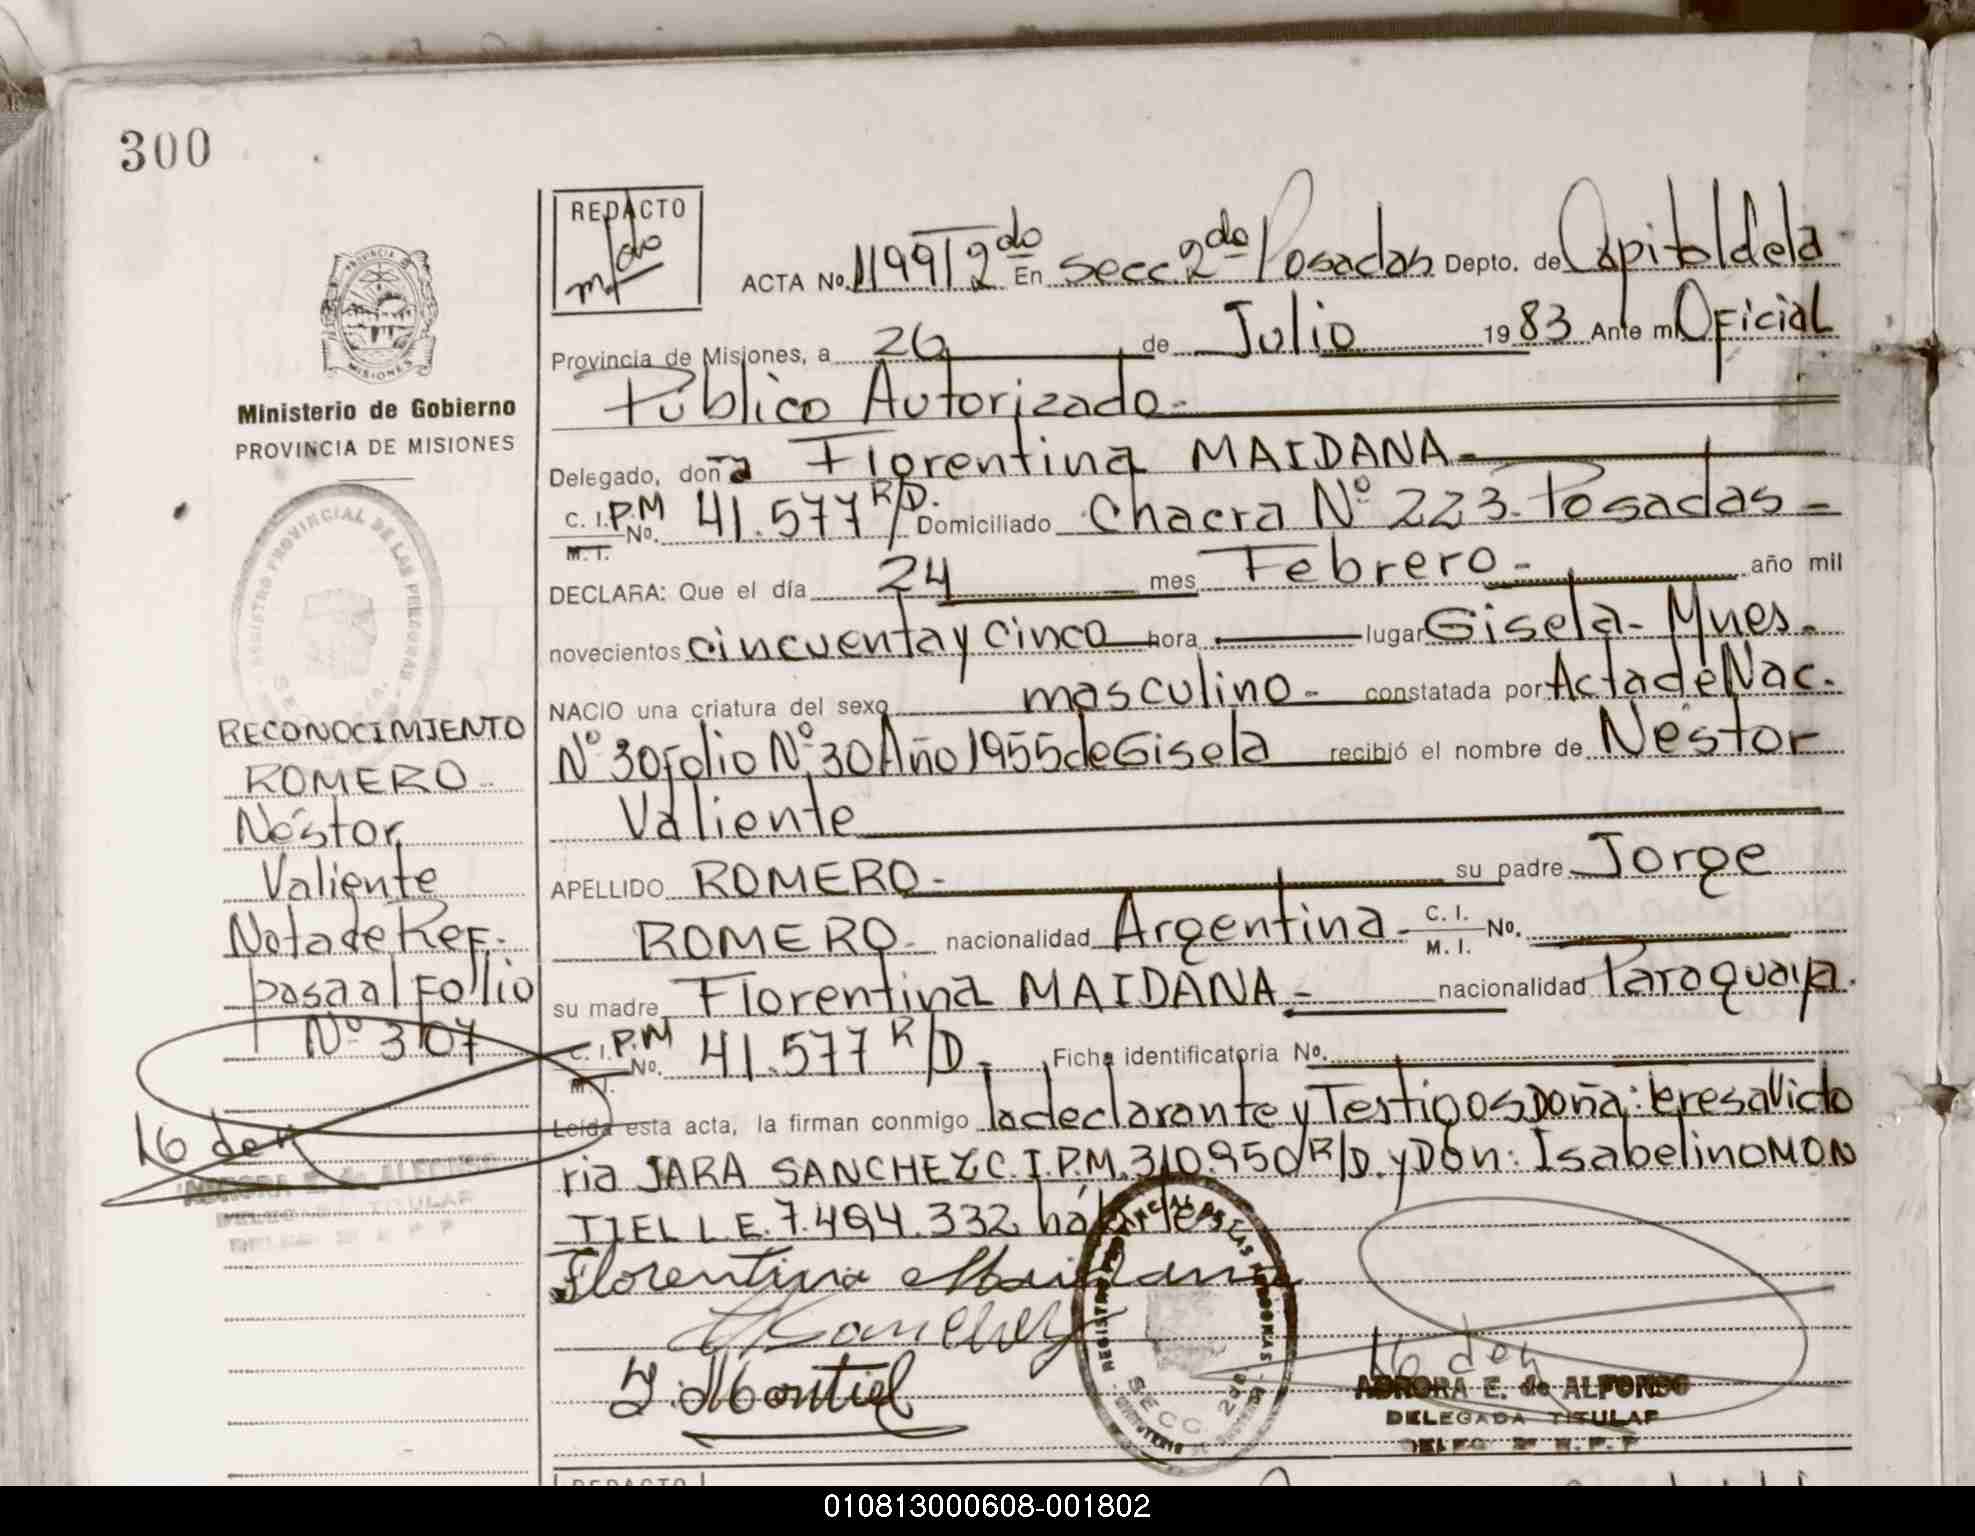 300
REDACTO
ACTA No. 1199 T 2do En secc. 2do Posadas Depto. de Capital de la
Provincia de Misiones, a 26 de Julio 1983 Ante mi Oficial
Público Autorizado-
Delegado, doña Florentina MAIDANA-
C. I. P.M No. 41.577 R/D. Domiciliado Chacra Nº 223- Posadas-
M. I.
DECLARA: Que el día 24 mes Febrero- año mil
novecientos cincuenta y cinco hora lugar Gisela- Mnes.
NACIO una criatura del sexo masculino- constatada por Acta de Nac.
Nº 30 Folio Nº 30 Año 1955 de Gisela recibió el nombre de Néstor
Valiente
APELLIDO ROMERO- su padre Jorge
ROMERO- nacionalidad Argentina- C. I. No.
M. I.
su madre Florentina MAIDANA- nacionalidad Paraguaya.
C. I. P.M No. 41.577 R/D- Ficha identificatoria No.
M. I.
Leída esta acta, la firman conmigo la declarante y Testigos Doña: Teresa Victo
ria JARA SANCHEZ C.I.P.M. 310.950 R/D. y Don: Isabelino MON
TIEL L.E. 7.494.332 hábiles
Florentina Maidana
Sanchez
I. Montiel
REGISTRO PROVINCIAL DE LAS PERSONAS
SECC. 2da.
AURORA E. de ALFONSO
DELEGADA TITULAR
DELEG 2ª R. P. P
PROVINCIA DE
MISIONES
Ministerio de Gobierno
PROVINCIA DE MISIONES
REGISTRO PROVINCIAL DE LAS PERSONAS
RECONOCIMIENTO
ROMERO
Néstor
Valiente
Nota de Ref.
pasa al Folio
Nº 307
AURORA E. de ALFONSO
DELEGADA TITULAR
DELEG 2ª R. P. P
REDACTO
010813000608-001802